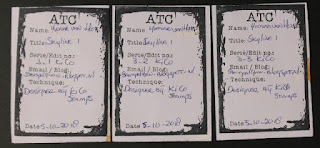 ATC
Name: Yvonne van Hees
Title: Skyline 1
Serie/Edit no:
3-1 KiCo
Email / Blog:
Technique:
Designed by KiCo
Stamps
Date 5-10-2018
ATC
Name:
Title: Skyline 1
Serie/Edit no:
3-2 KiCo
Email / Blog:
Technique:
Designed by KiCo
Stamps
Date 5-10-2018
ATC
Name:
Title: Skyline 1
Serie/Edit no:
3-3 KiCo
Email / Blog:
Technique:
Designed by KiCo
Stamps
Date 5-10-2018